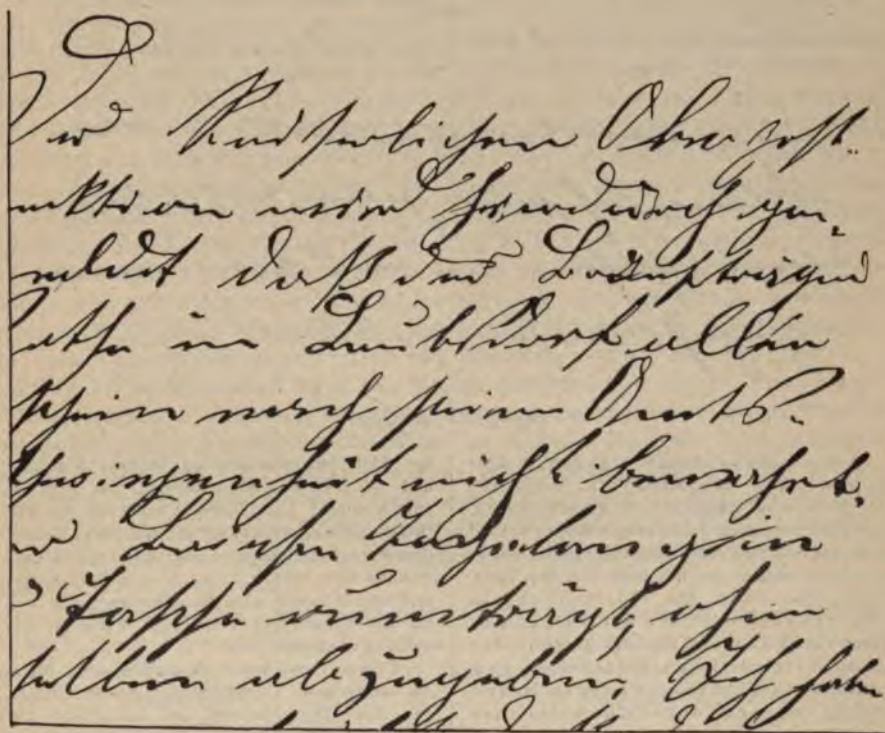 Der Kaiserlichen Oberpost-
ektion wird hierdurch ge-
meldet daß der Briefträger
in Laubsdorf allem
schein nach seine Amts-
schwiegenheit nicht bewahrt,
er Briefe tagelang in
r Tasche rumträgt, ohne
selben abzugeben. Ich habe